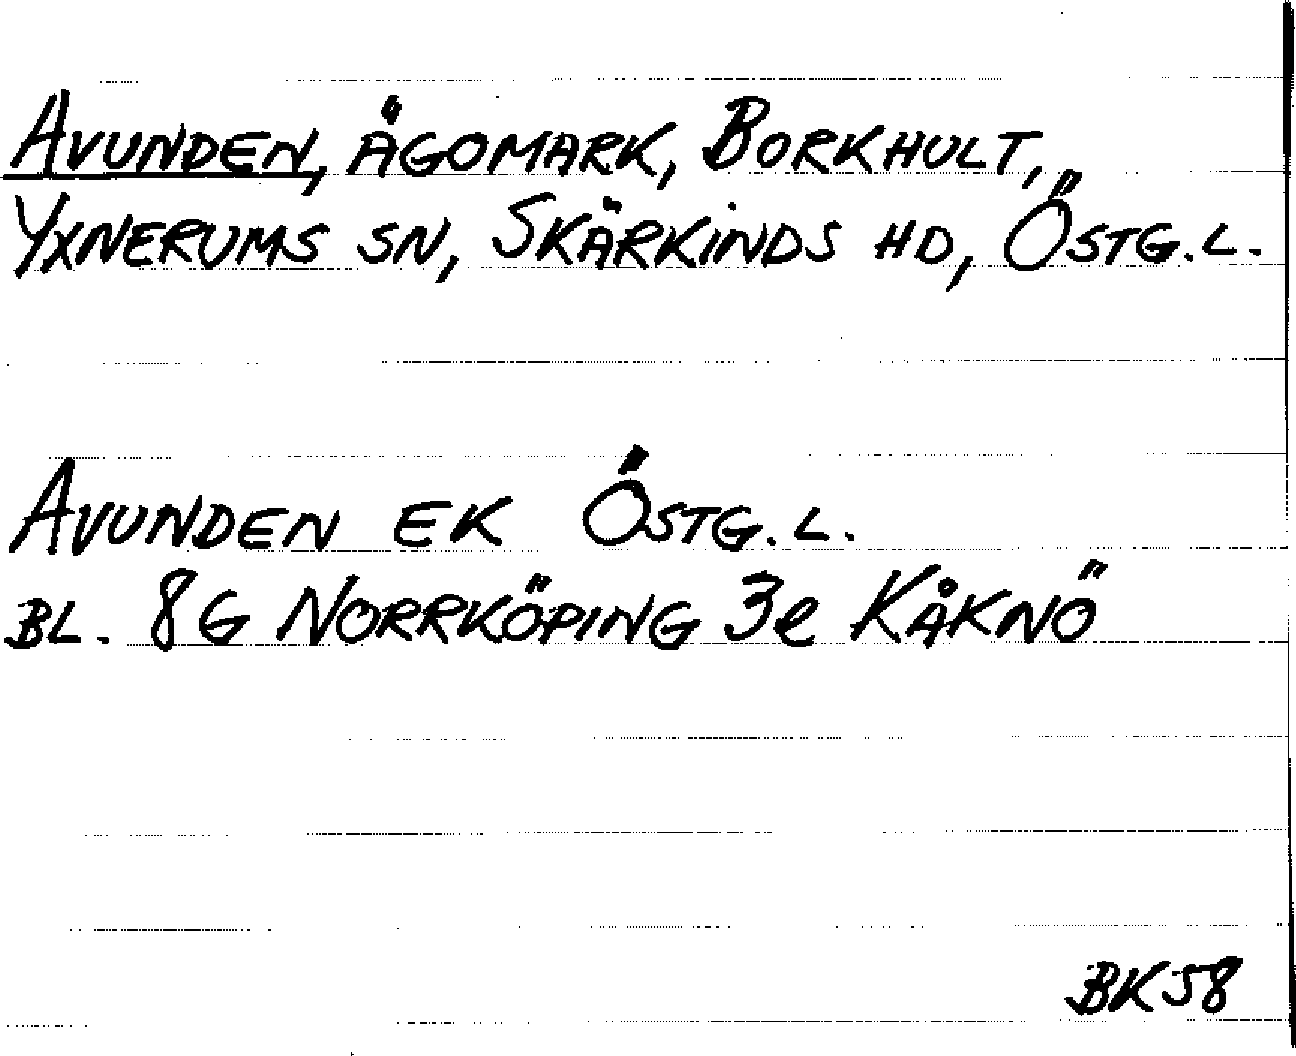 AVUNDEN, ÄGOMARK, BORKHULT,
YXNERUMS SN, SKÄRKINDS HD, ÖSTG.L.
AVUNDEN EK ÖSTG.L.
BL. 8G NORRKÖPING 3e KÅKNÖ
BK58